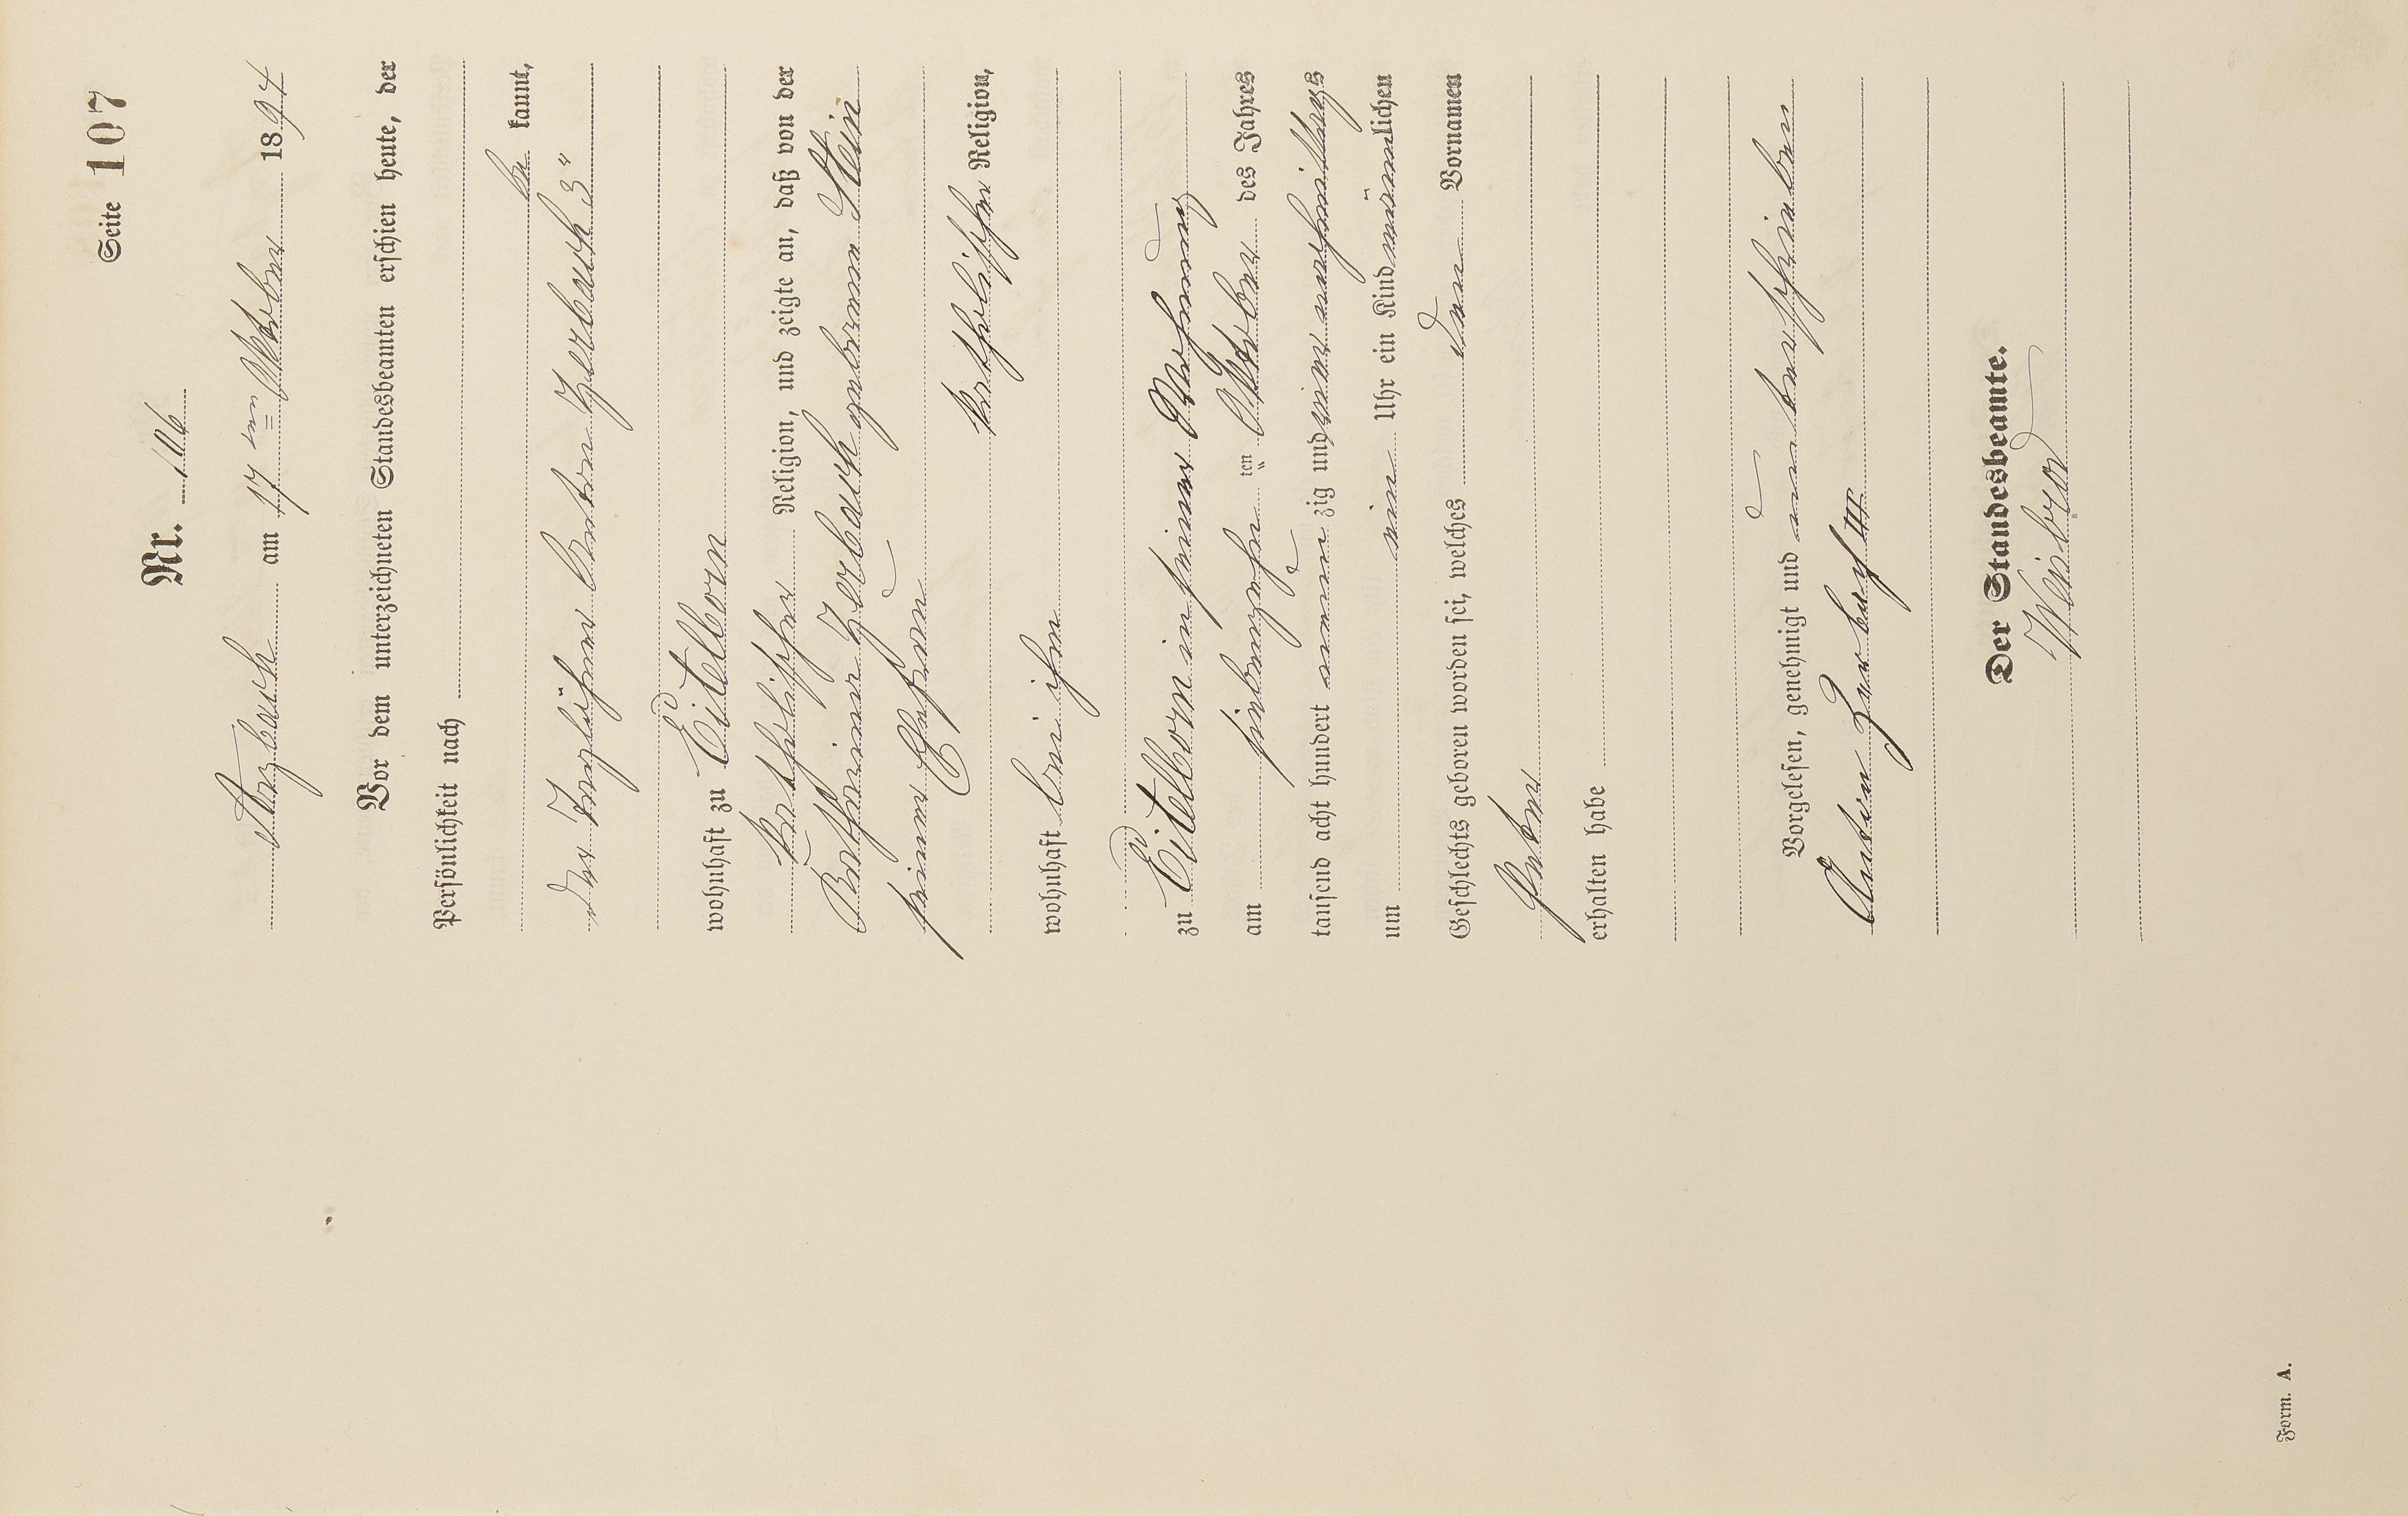 Seite 107
Nr. 106
Arzbach am 17ten Oktober 1894
Vor dem unterzeichneten Standesbeamten erschien heute, der
Persönlichkeit nach
be kannt,
der Taglöhner Anton Herbach 3"
wohnhaft zu Eitelborn
katholischer Religion, und zeigte an, daß von der
Katharina Herbach geborene Stein
seiner Ehefrau
katholischer Religion,
wohnhaft bei ihm
zu Eitelborn in seiner Wohnung
am siebenzehn ten Oktober des Jahres
tausend acht hundert neun zig und vier nachmittags
um ein Uhr ein Kind männlichen
Geschlechts geboren worden sei, welches den Vornamen
Peter
erhalten habe
Vorgelesen, genehmigt und unterschrieben
Anton Herbach III
Der Standesbeamte.
Form. A.